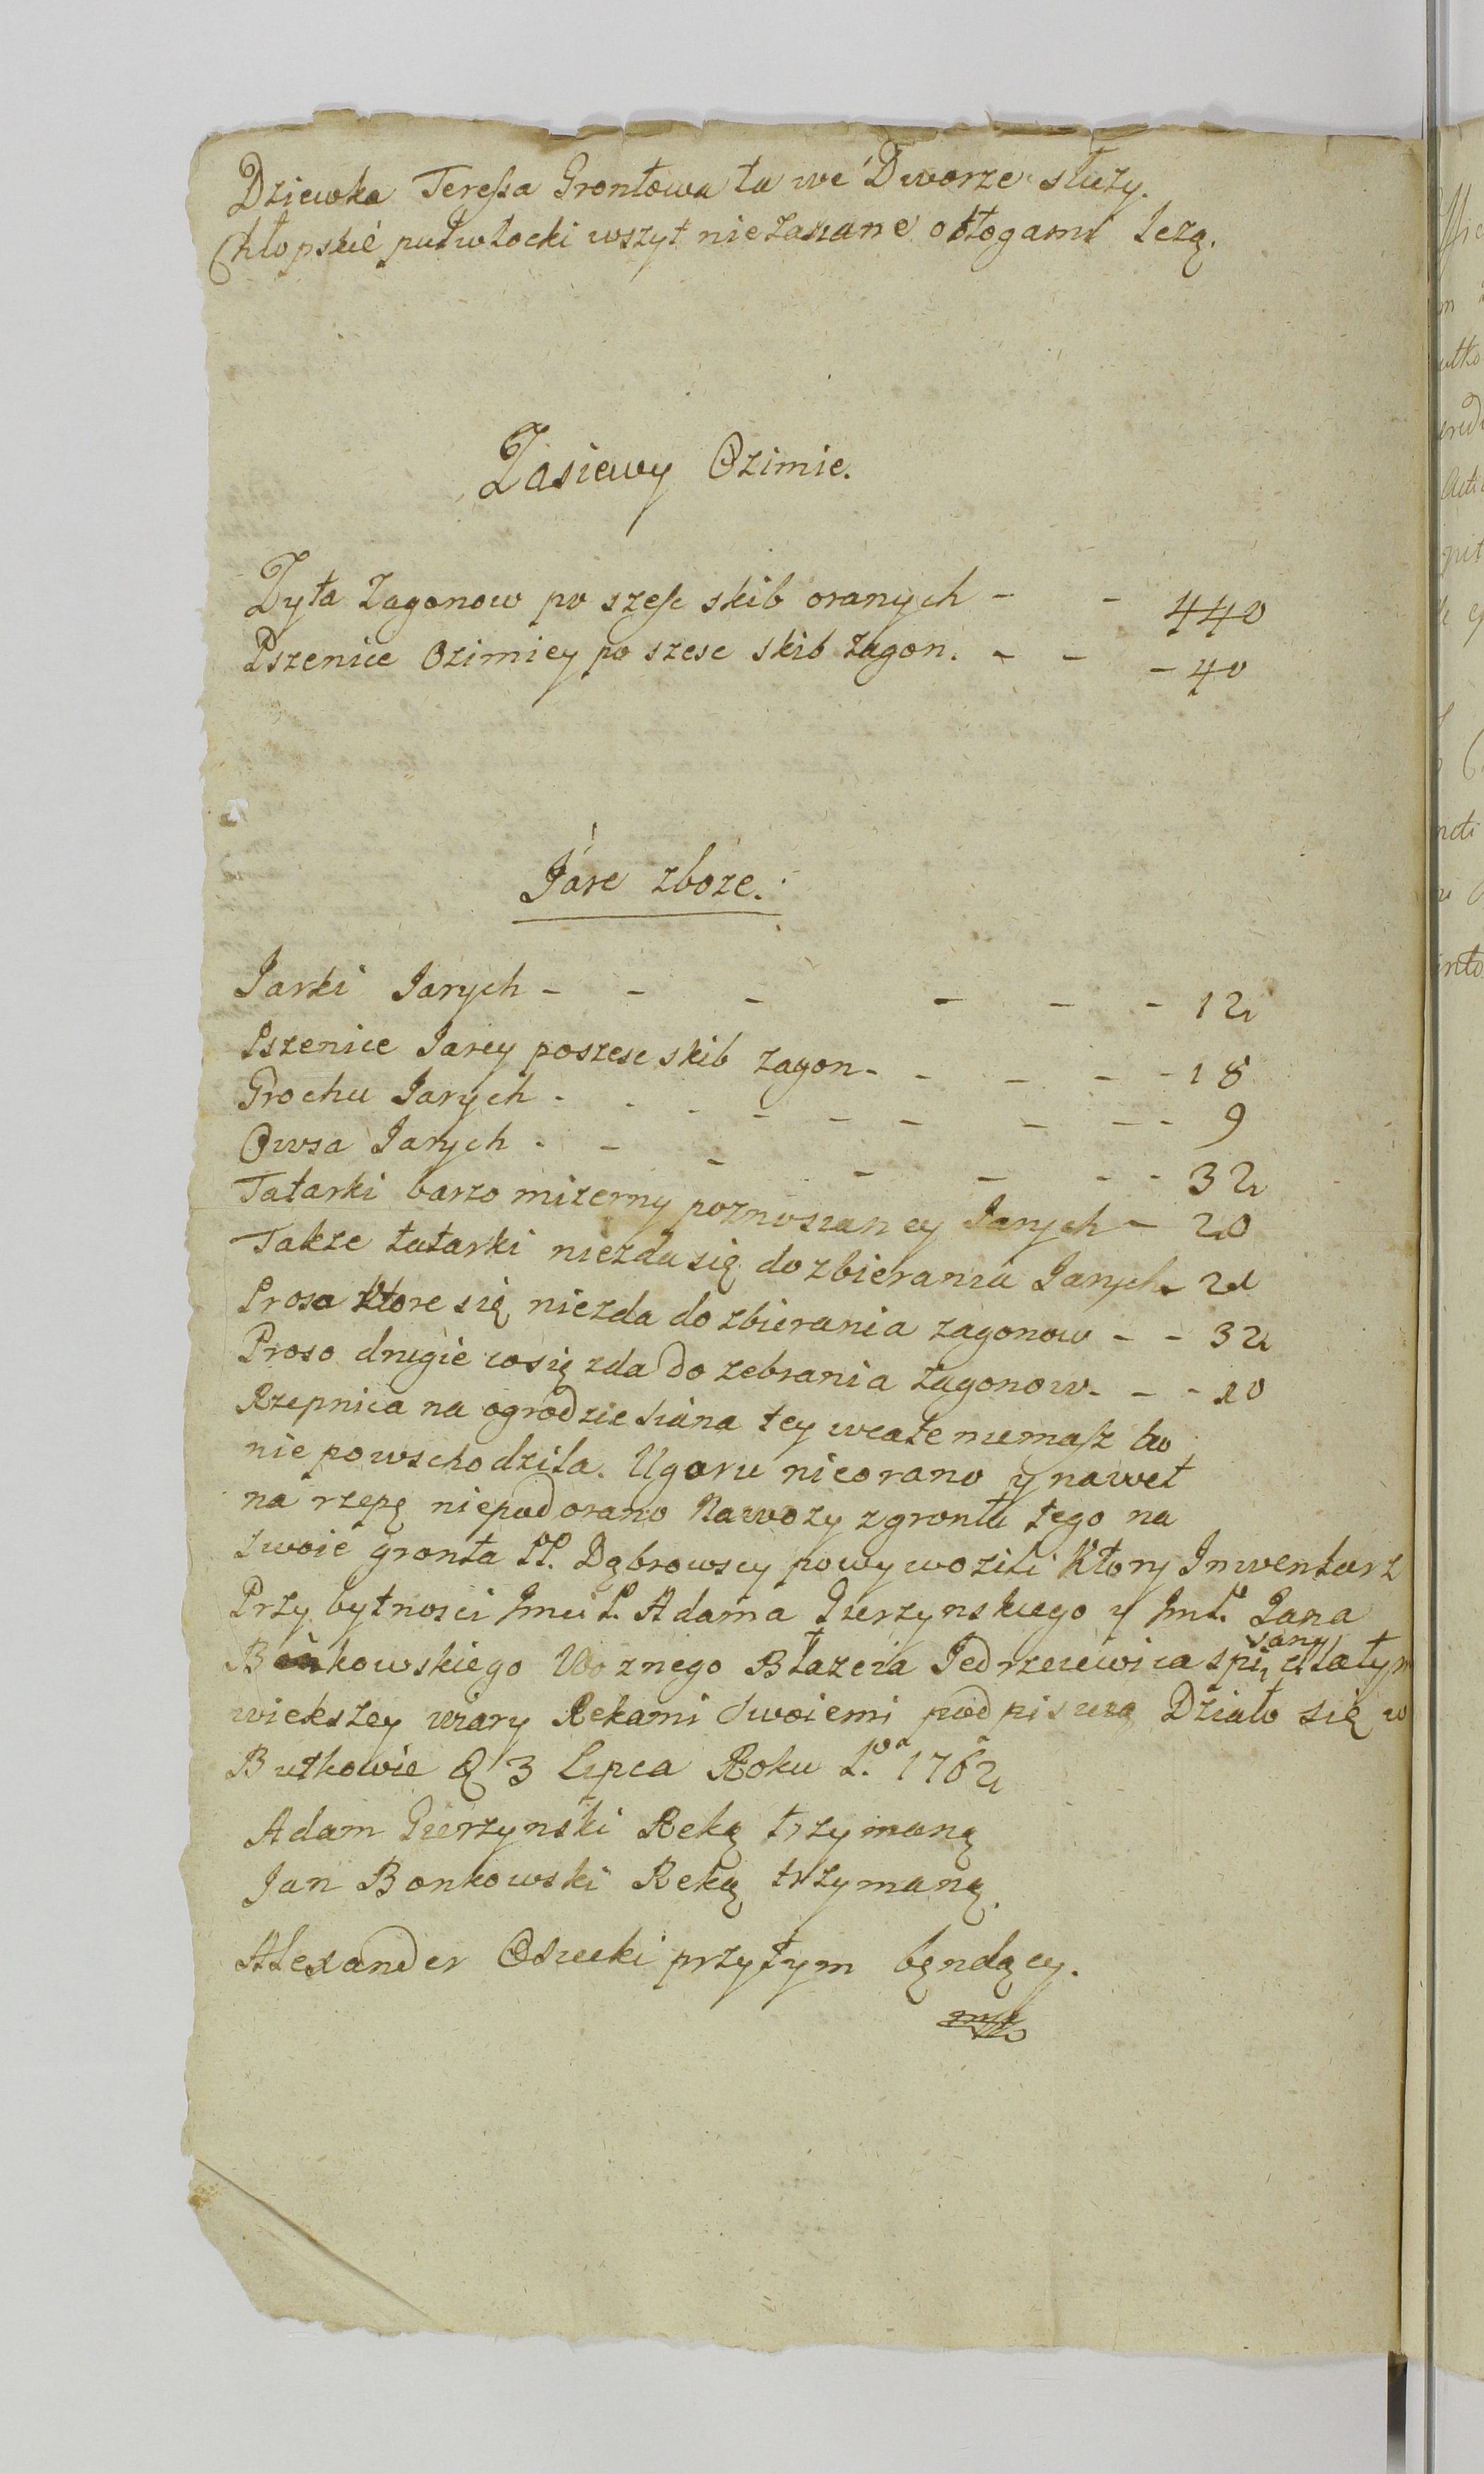 Dziewka Teressa Grontowa ta we Dworze służy.
Chłopskie pułwłocki wszyt niezasiane obłogami leżą.
Zasiewy Ozimie.
Zyta Zagonow po szesc skib oranych - - 440
Pszenice Ozimiey po szesc skib zagon. - - - 40
Jare zboze.
Jarki Jarych - - - - - - 12
Pszenice Jarey poszesc skib zagon - - - - - 18
Grochu Jarych - - - - - - - - - 9
Owsa Jarych - - - - - - - 32
Tatarki barzo mizerny poznosianey Jarych - 20
Takze tatarki niezda się do zbierania Jarych - 21
Prosa ktore się niezda do zbierania zagonow - - 32
Proso drugie co się zda do zebrania zagonow - - - 10
Rzepnica na ogrodzie siana tey wcale niemasz bo
nie powschodziła. Ugoru nieorano y nawet
na rzepę niepodorano Nawozy z grontu tego na
swoie gronta PP. Dąbrowscy powywozili Ktory Inwentarz
Przy bytnosci Jmci P. Adama Gierzynskiego y Jm P. Jana
Bonkowskiego Woznego Błazeia Jedrzeiewica spisany
wiekszey wiary Rekami swoiemi podpisuią Działo się w
Butkowie D 3 Lipca Roku Pa. 1762
Adam Gierzynski Reką trzymaną
Jan Bonkowski Reką trzymaną
Alexander Osiecki przytym będący.